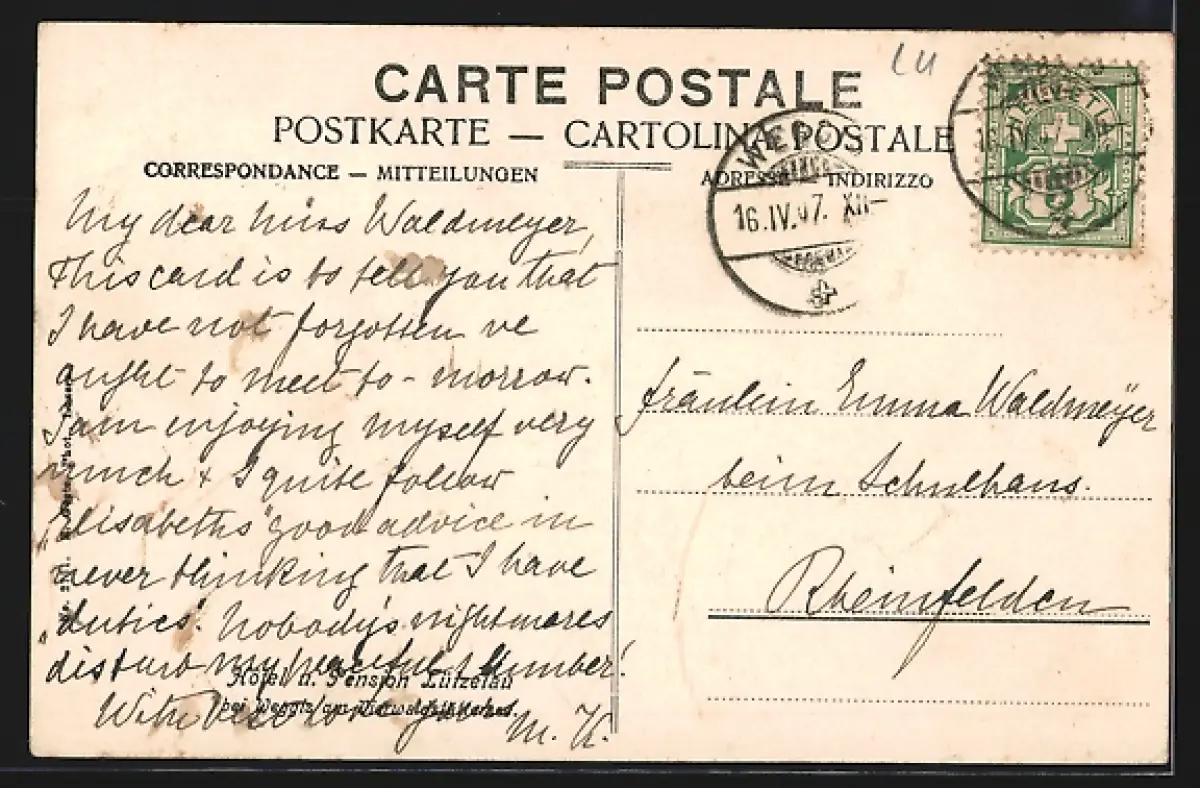 LU
CARTE POSTALE
POSTKARTE — CARTOLINA POSTALE
CORRESPONDANCE — MITTEILUNGEN
ADRESSE — INDIRIZZO
WEGGIS
16.IV.07. XII—
HELVETIA
16.IV.07
My dear Miss Waldmeyer,
this card is to tell you that
I have not forgotten we
ought to meet to-morrow.
I am enjoying myself very
much & I quite follow
"Elisabeths" good advice in
never thinking that I have
"duties". Nobody's nightmares
disturb my peaceful slumber!
With best love yours
M. K.
Fräulein Emma Waldmeÿer
beim Schulhaus.
Rheinfelden
Hotel u. Pension Lützelau
bei Weggis am Vierwaldstättersee.